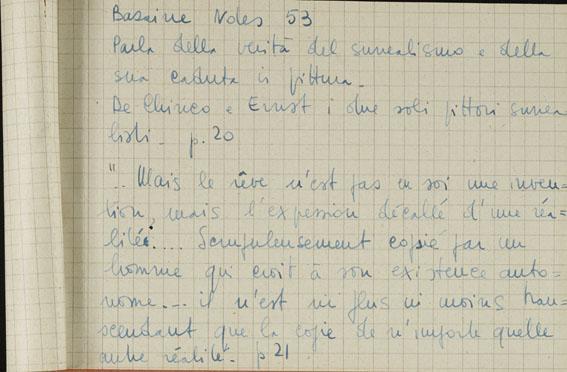 Bazaine Notes 53
Parla della verità del surrealismo e della
sua caduta in pittura.
De Chirico e Ernst i due soli pittori surrea
listi. p. 20
".. Mais le rêve n'est pas en soi une inven=
tion, mais l'expession décallé d'une réa=
lité.... Scrupuleusement copié par un
homme qui croit à son existence auto=
nome... il n'est ni plus ni moins tran=
scendant que la copie de n'importe quelle
autre réalité. p 21